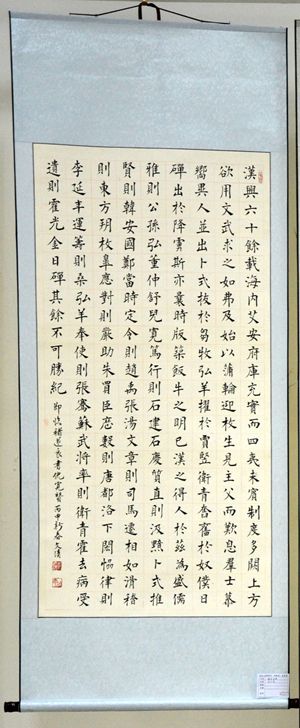 漢興六十餘載海內艾安府庫充實而四夷未賓制度多闕上方
欲用文武求之如弗及始以蒲輪迎枚生見主父而歎息羣士慕
嚮異人並出卜式拔於芻牧弘羊擢於賈豎衛青奮於奴僕日
磾出於降虜斯亦曩時版築飯牛之明已漢之得人於茲為盛儒
雅則公孫弘董仲舒兒寬篤行則石建石慶質直則汲黯卜式推
賢則韓安國鄭當時定令則趙禹張湯文章則司馬遷相如滑稽
則東方朔枚皋應對則嚴助朱買臣歷數則唐都洛下閎恊律則
李延年運籌則桑弘羊奉使則張騫蘇武將率則衛青霍去病受
遺則霍光金日磾其餘不可勝紀
節臨褚遂良書倪寬贊丙申新春文